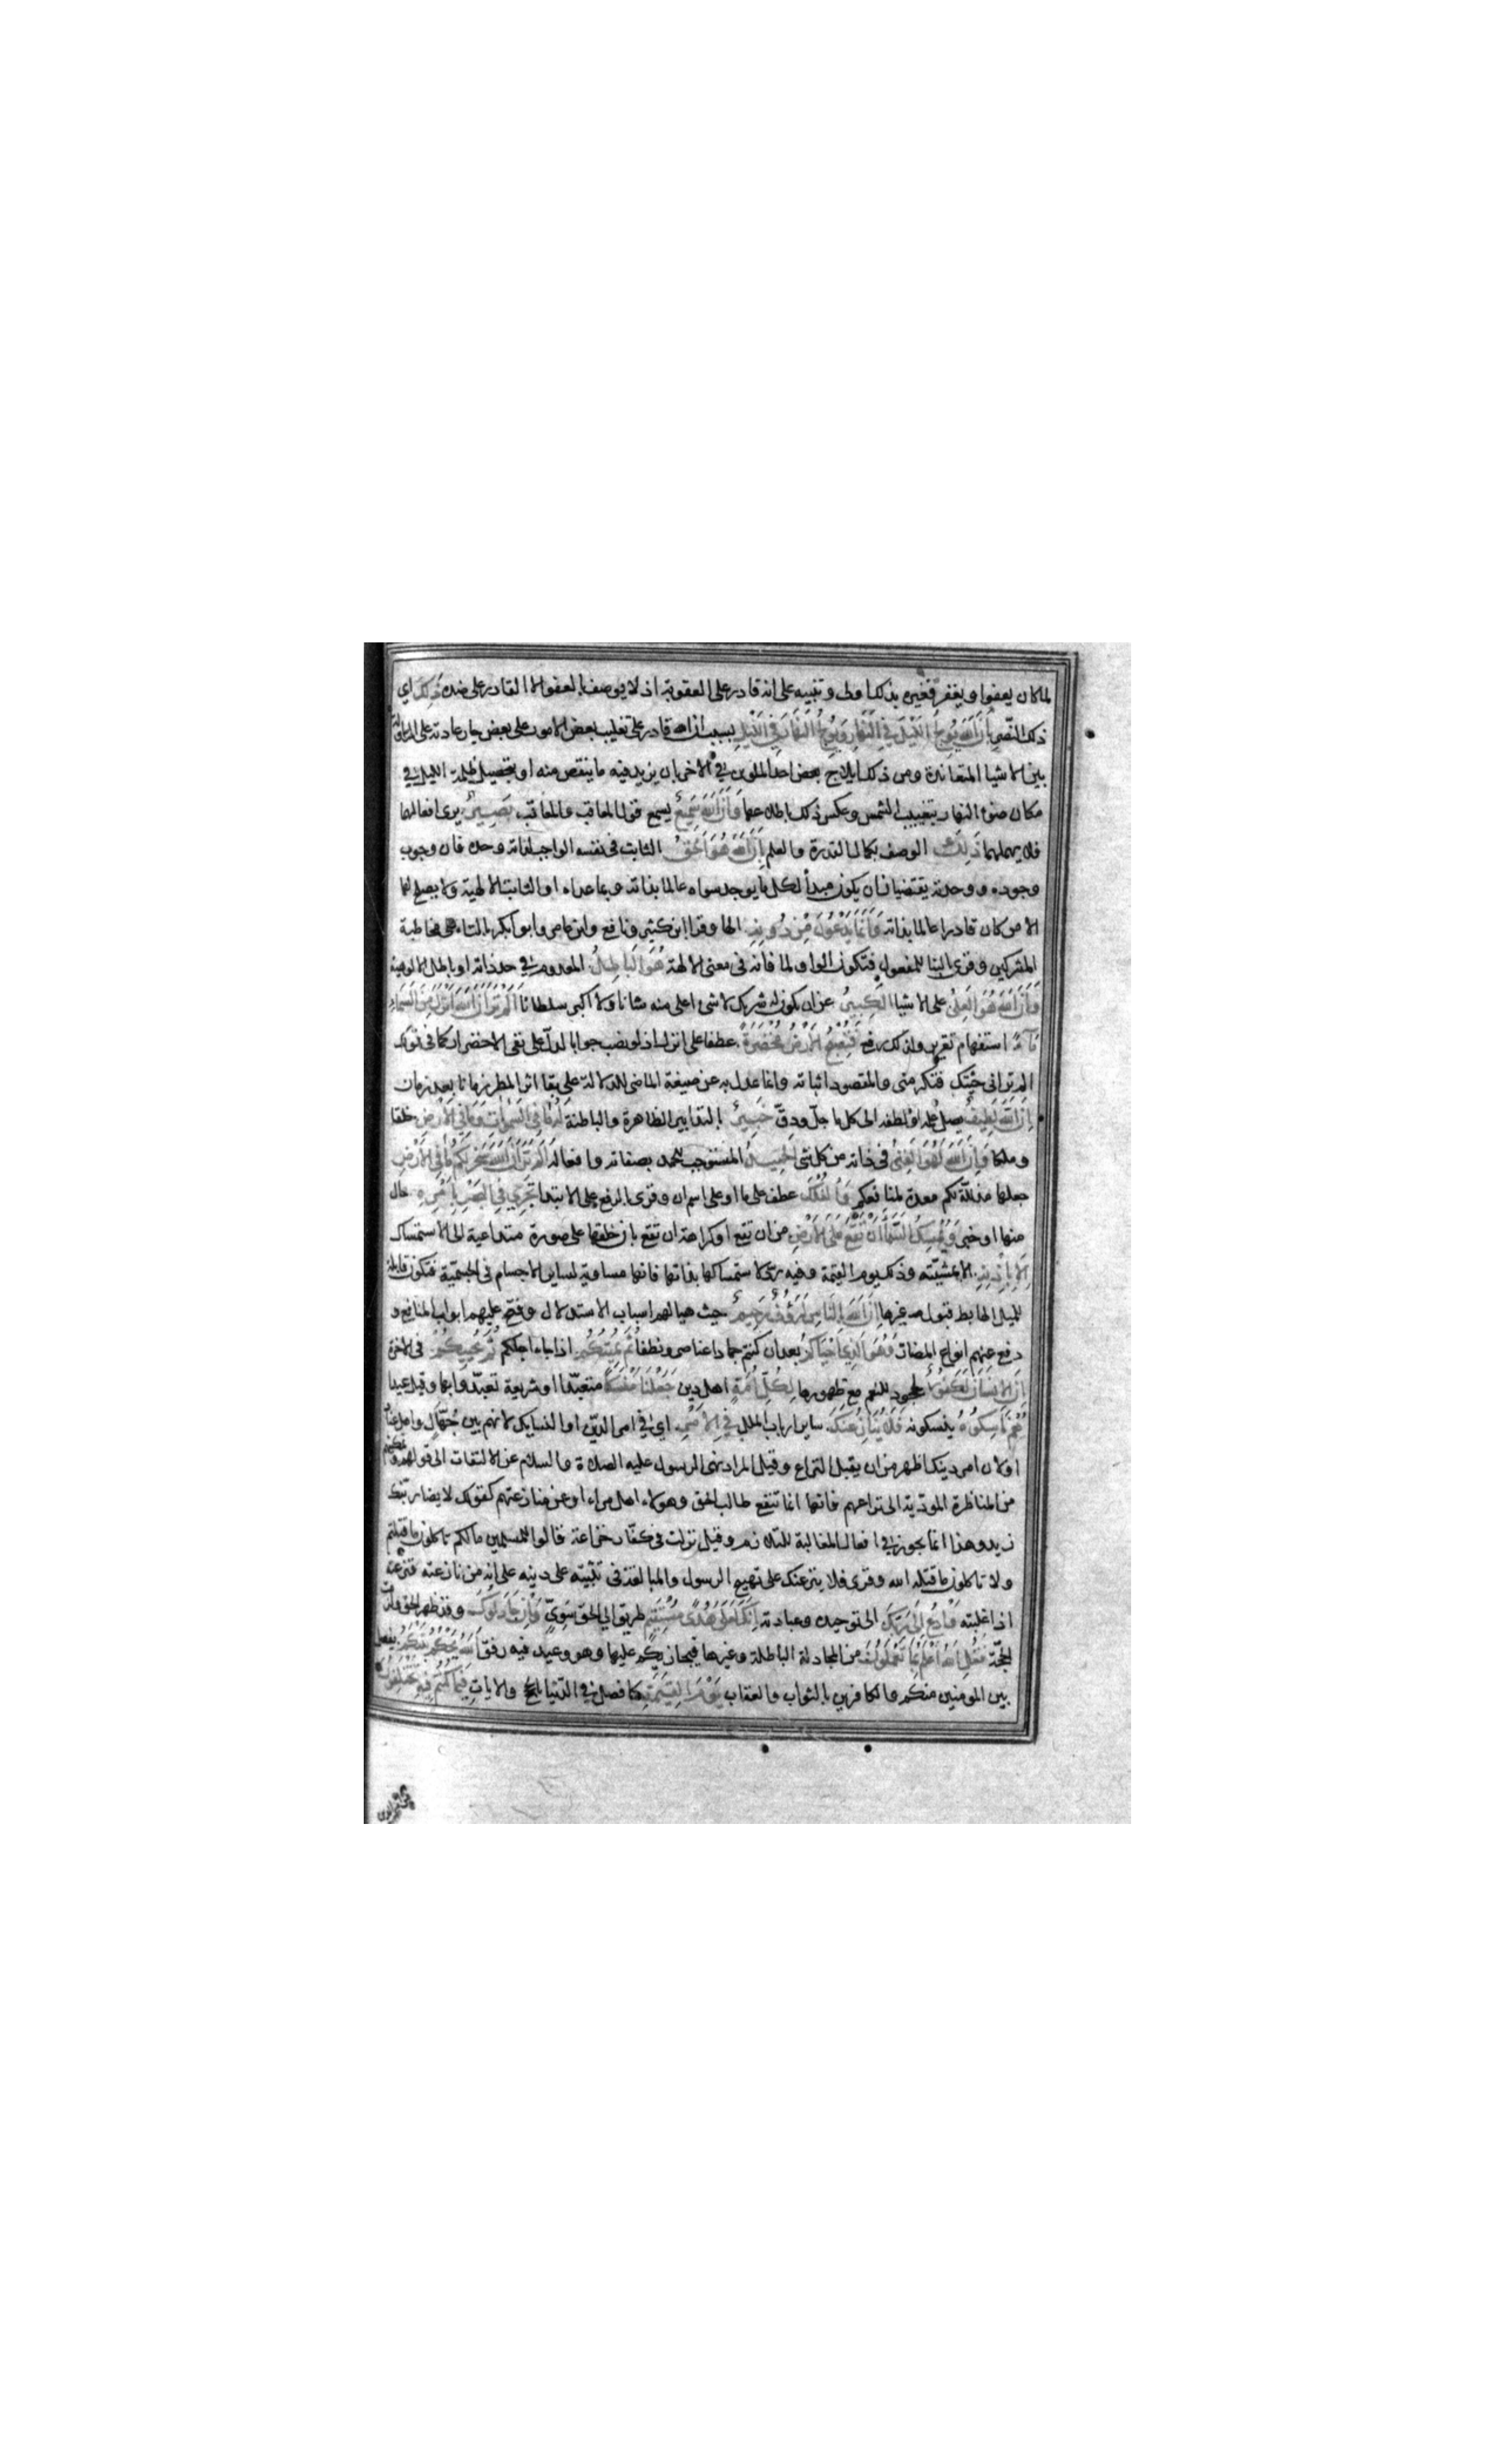 لما كان يعفوا ويغفر فغيره بذلك اولى وتنبيه على انه قادر على العقوبة اذ لا يوصف بالعفو الا القادر على ضده ذلك اي
ذلك النصر بأن الله يولج الليل في النهار ويولج النهار في الليل بسبب ان الله قادر على تغليب بعض الامور على بعض جار عادته على المداولة
بين الاشيا المتعاندة ومن ذلك ايلاج بعض احد الملوين في الاخر بان يزيد فيه ما ينقص منه او بتحصيل ظلمة الليل في
مكان ضوء النهار بتغييب الشمس وعكس ذلك باطلاعها وأن الله سميع يسمع قول المعاقب والمعاقب بصير يرى افعالهما
فلا يهملهما ذلك الوصف بكمال القدرة والعلم بأن الله هو الحق الثابت في نفسه الواجب لذاته وحده فان وجوب
وجوده ووحدته يقتضيان ان يكون مبدأ لكل ما يوجد سواه عالما بذاته وبما عداه او الثابت الالهية ولا يصلح لها
الا من كان قادرا عالما بذاته وأنما يدعون من دونه الها وقرا ابن كثير ونافع وابن عامر وابو ابكر بالتاء على مخاطبة
المشركين وقرئ بالبنا للمفعول فتكون الواو لما فانه في معنى الالهة هو الباطل المعدوم في حد ذاته او باطل الالوهية
وأن الله هو العلي على الاشيا الكبير عن ان يكون له شريك لا شئ اعلى منه شانا ولا اكبر سلطانا ألم تر أن الله أنزل من السماء
ماء استفهام تقرير ولذلك رفع فتصبح الأرض مخضرة عطفا على انزل اذ لو نصب جوابا لدل على نفى الاخضرار كما في قولك
الم تر اني جئتك فتكرمنى والمقصود اثباته وانما عدل به عن صيغة الماضي للدلالة على بقا اثر المطر زمانا بعد زمان
إن الله لطيف يصل علمه او لطفه الى كل ما جل ودق خبير بالتدابير الظاهرة والباطنة له ما في السموات وما في الأرض خلقا
وملكا وإن الله لهو الغني في ذاته من كل شئ الحميد المستوجب للحمد بصفاته وافعاله ألم تر أن الله سخر لكم ما في الأرض
جعلها مذللة لكم معدة لمنافعكم والفلك عطف على ما او على اسم ان وقرئ بالرفع على الابتدا تجري في البحر بأمره حال
منها او خبر ويمسك السماء أن تقع على الأرض من ان تقع او كراهة ان تقع بان خلقها على صورة متداعية الى الاستمساك
إلا بإذنه الا بمشيته وذلك يوم القيمة وفيه رد لاستمساكها بذاتها فانها مساوية لساير الاجسام في الجسمية فتكون قابلة
للميل الهابط قبول غيرها إن الله بالناس لرؤف رحيم حيث هيا لهم اسباب الاستدلال وفتح عليهم ابواب المنافع و
دفع عنهم انواع المضار وهو الذي أحياكم بعد ان كنتم جمادا عناصر ونطفا ثم يميتكم اذا جاء اجلكم ثم يحييكم في الاخرة
إن الإنسان لكفور لجحود للنعم مع ظهورها لكل أمة اهل دين جعلنا منسكا متعبدا او شريعة تعبدوا بها وقيل عيدا
هم ناسكوه ينسكونه فلا ينازعنك ساير ارباب الملل في الأمر اي في امر الدين او النسايك لانهم بين جهال واهل عناد
او لان امر دينك اظهر من ان يقبل النزاع وقيل المراد نهى الرسول عليه الصلاة والسلام عن الالتفات الى قولهم وتمكينهم
من المناظرة المودية الى نزاعهم فانها انما تنفع طالب الحق وهولاء اهل مراء او عن منازعتهم كقولك لا يضاربنك
زيد وهذا انما يجوز في افعال المغالبة للتلازم وقيل نزلت في كفار خزاعة قالوا للمسلمين ما لكم تاكلون ما قتلتم
ولا تاكلون ما قتله الله وقرى فلا ينزعنك على تهييج الرسول والمبالغة في تثبيته على دينه على انه من نازعته فنزعته
اذا غلبته وادع إلى ربك الى توحيده وعبادته إنك لعلى هدى مستقيم طريق الى الحق سوي وإن جادلوك وقد ظهر الحق ولزمت
الحجة فقل الله أعلم بما تعملون من المجادلة الباطلة وغيرها فيجازيكم عليها وهو وعيد فيه رفق الله يحكم بينكم يفصل
بين المومنين منكم والكافرين بالثواب والعقاب يوم القيمة كما فصل في الدنيا بالحجج والايات فيما كنتم فيه تختلفون